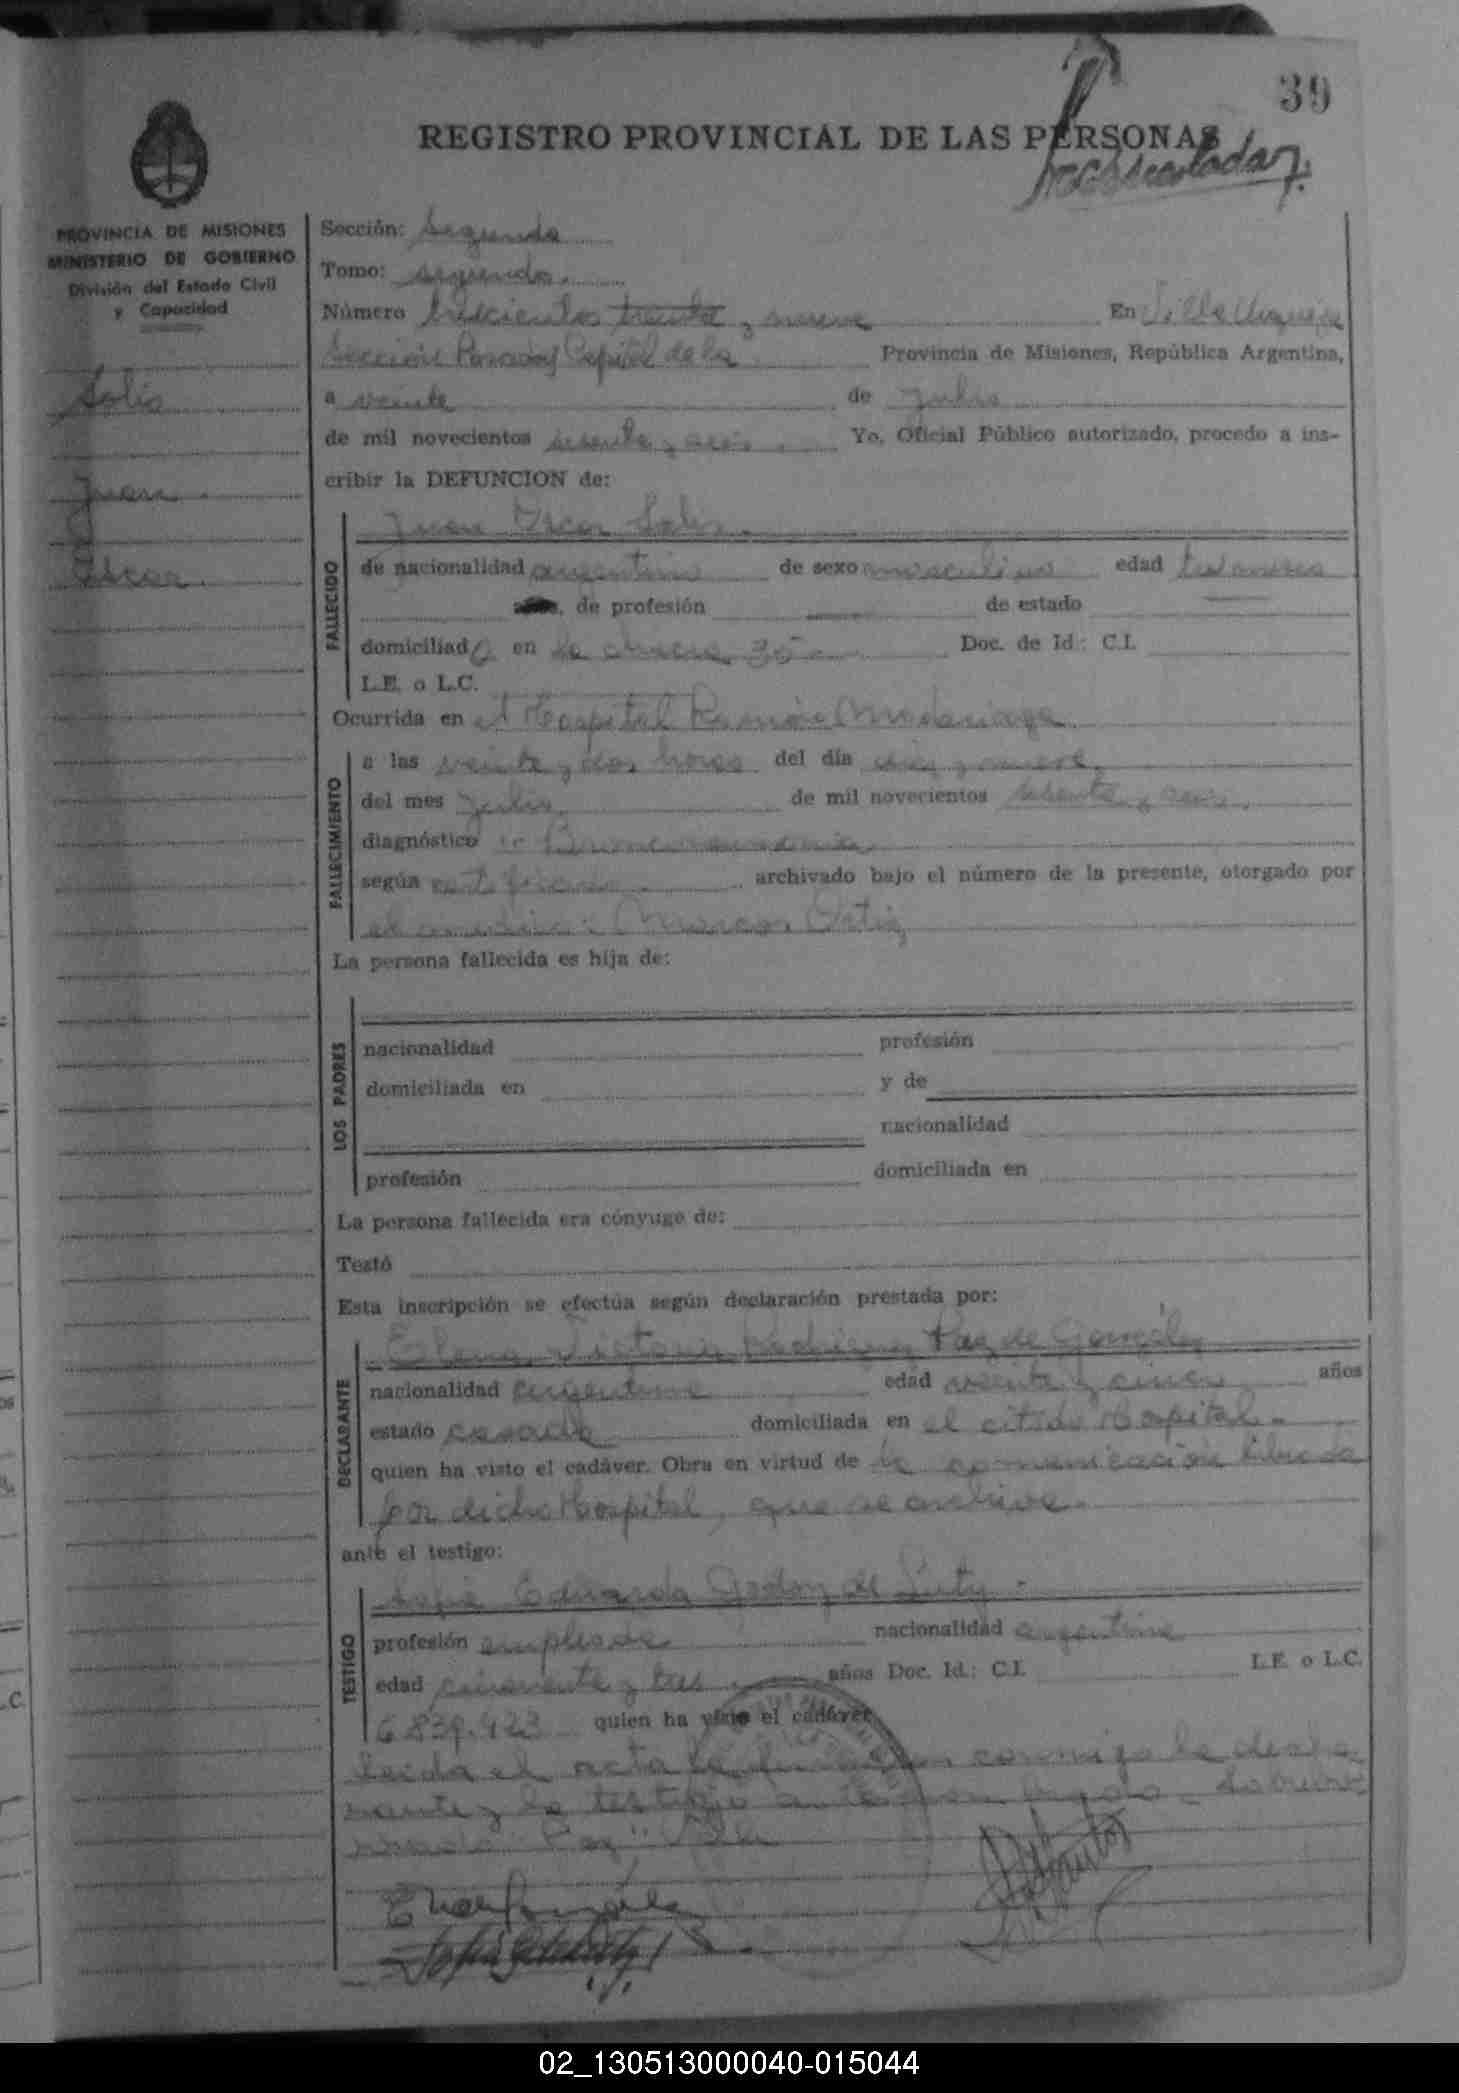 39
REGISTRO PROVINCIAL DE LAS PERSONAS
PROVINCIA DE MISIONES
MINISTERIO DE GOBIERNO
División del Estado Civil
y Capacidad
Solis
Juan
Oscar
Sección: Segunda
Tomo: segundo.
Número trescientos treinta y nueve En Villa Urquiza
Sección Posadas Capital de la Provincia de Misiones, República Argentina,
a veinte de julio
de mil novecientos sesenta y seis. Yo, Oficial Público autorizado, procedo a ins-
cribir la DEFUNCION de:
Juan Oscar Solis.
FALLECIDO
de nacionalidad argentina de sexo masculino edad tres meses
de profesión de estado
domiciliado en la chacra 35 Doc. de Id.: C.I.
L.E. o L.C.
Ocurrida en el Hospital Ramón Madariaga
FALLECIMIENTO
a las veinte y dos horas del día diez y nueve
del mes julio de mil novecientos sesenta y seis.
diagnóstico Bronconeumonia
según certificado archivado bajo el número de la presente, otorgado por
el médico: Marcos Ortiz
La persona fallecida es hija de:
LOS PADRES
nacionalidad profesión
domiciliada en y de
nacionalidad
profesión domiciliada en
La persona fallecida era cónyuge de:
Testó
Esta inscripción se efectúa según declaración prestada por:
DECLARANTE
Elena Victoria Rodriguez Paz de González
nacionalidad argentina edad veinte y cinco años
estado casada domiciliada en el citado Hospital.-
quien ha visto el cadáver. Obra en virtud de la comunicación librada
por dicho Hospital, que se archiva.
ante el testigo:
TESTIGO
Sofia Eduarda Godoy de
profesión empleada nacionalidad argentina
edad cincuenta y tres años Doc. Id.: C.I. L.E. o L.C.
6.839.423 quien ha visto el cadáver
Leida el acta la firman conmigo la decla-
rante y la testigo
"Paz" Vale
02_130513000040-015044